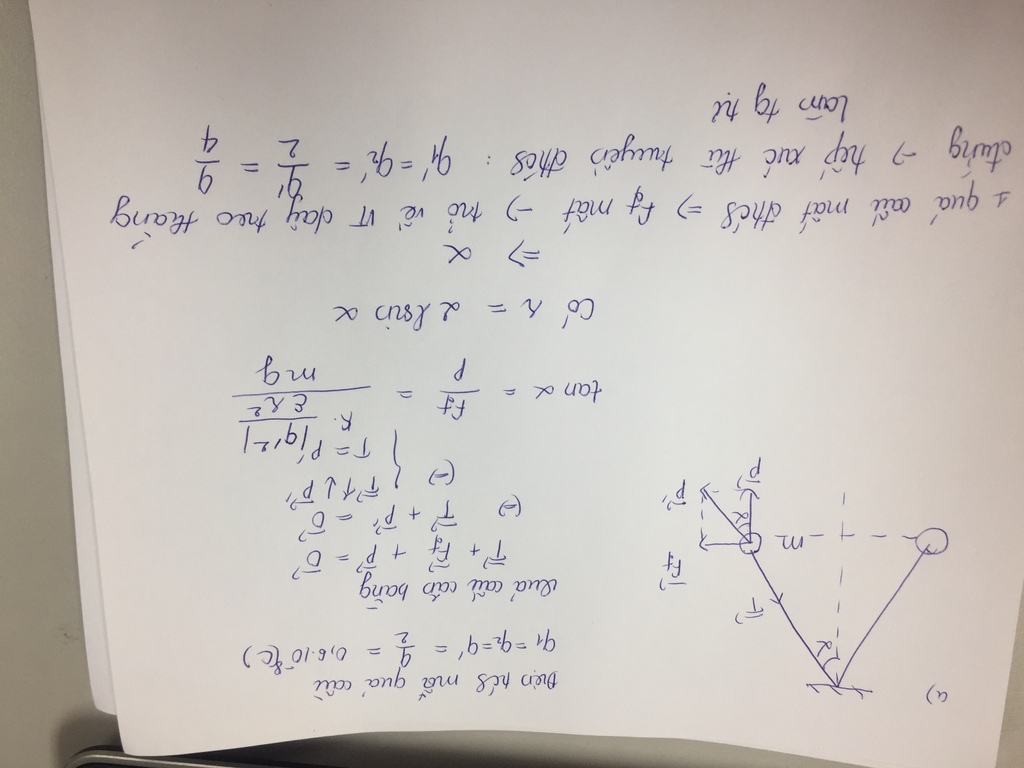 a)
α
T⃗
F⃗đ
m
α
P⃗
P⃗'
Điện tích mỗi quả cầu
q1 = q2 = q' = q/2 = 0,6.10^-8 (C)
Quả cầu cân bằng
T⃗ + F⃗đ + P⃗ = 0⃗
(=) T⃗ + P⃗' = 0⃗
(=) { T⃗ ↑↓ P⃗'
T = P'
tan α = Fđ/P = (k.|q'^2|/(εr^2))/(mg)
Có r = 2lsin α
=> α
1 quả cầu mất đtích => Fđ mất -> trở về VT dây treo thẳng
đứng -> tiếp xúc thì truyền đtích : q1' = q2' = q'/2 = q/4
làm tg tự